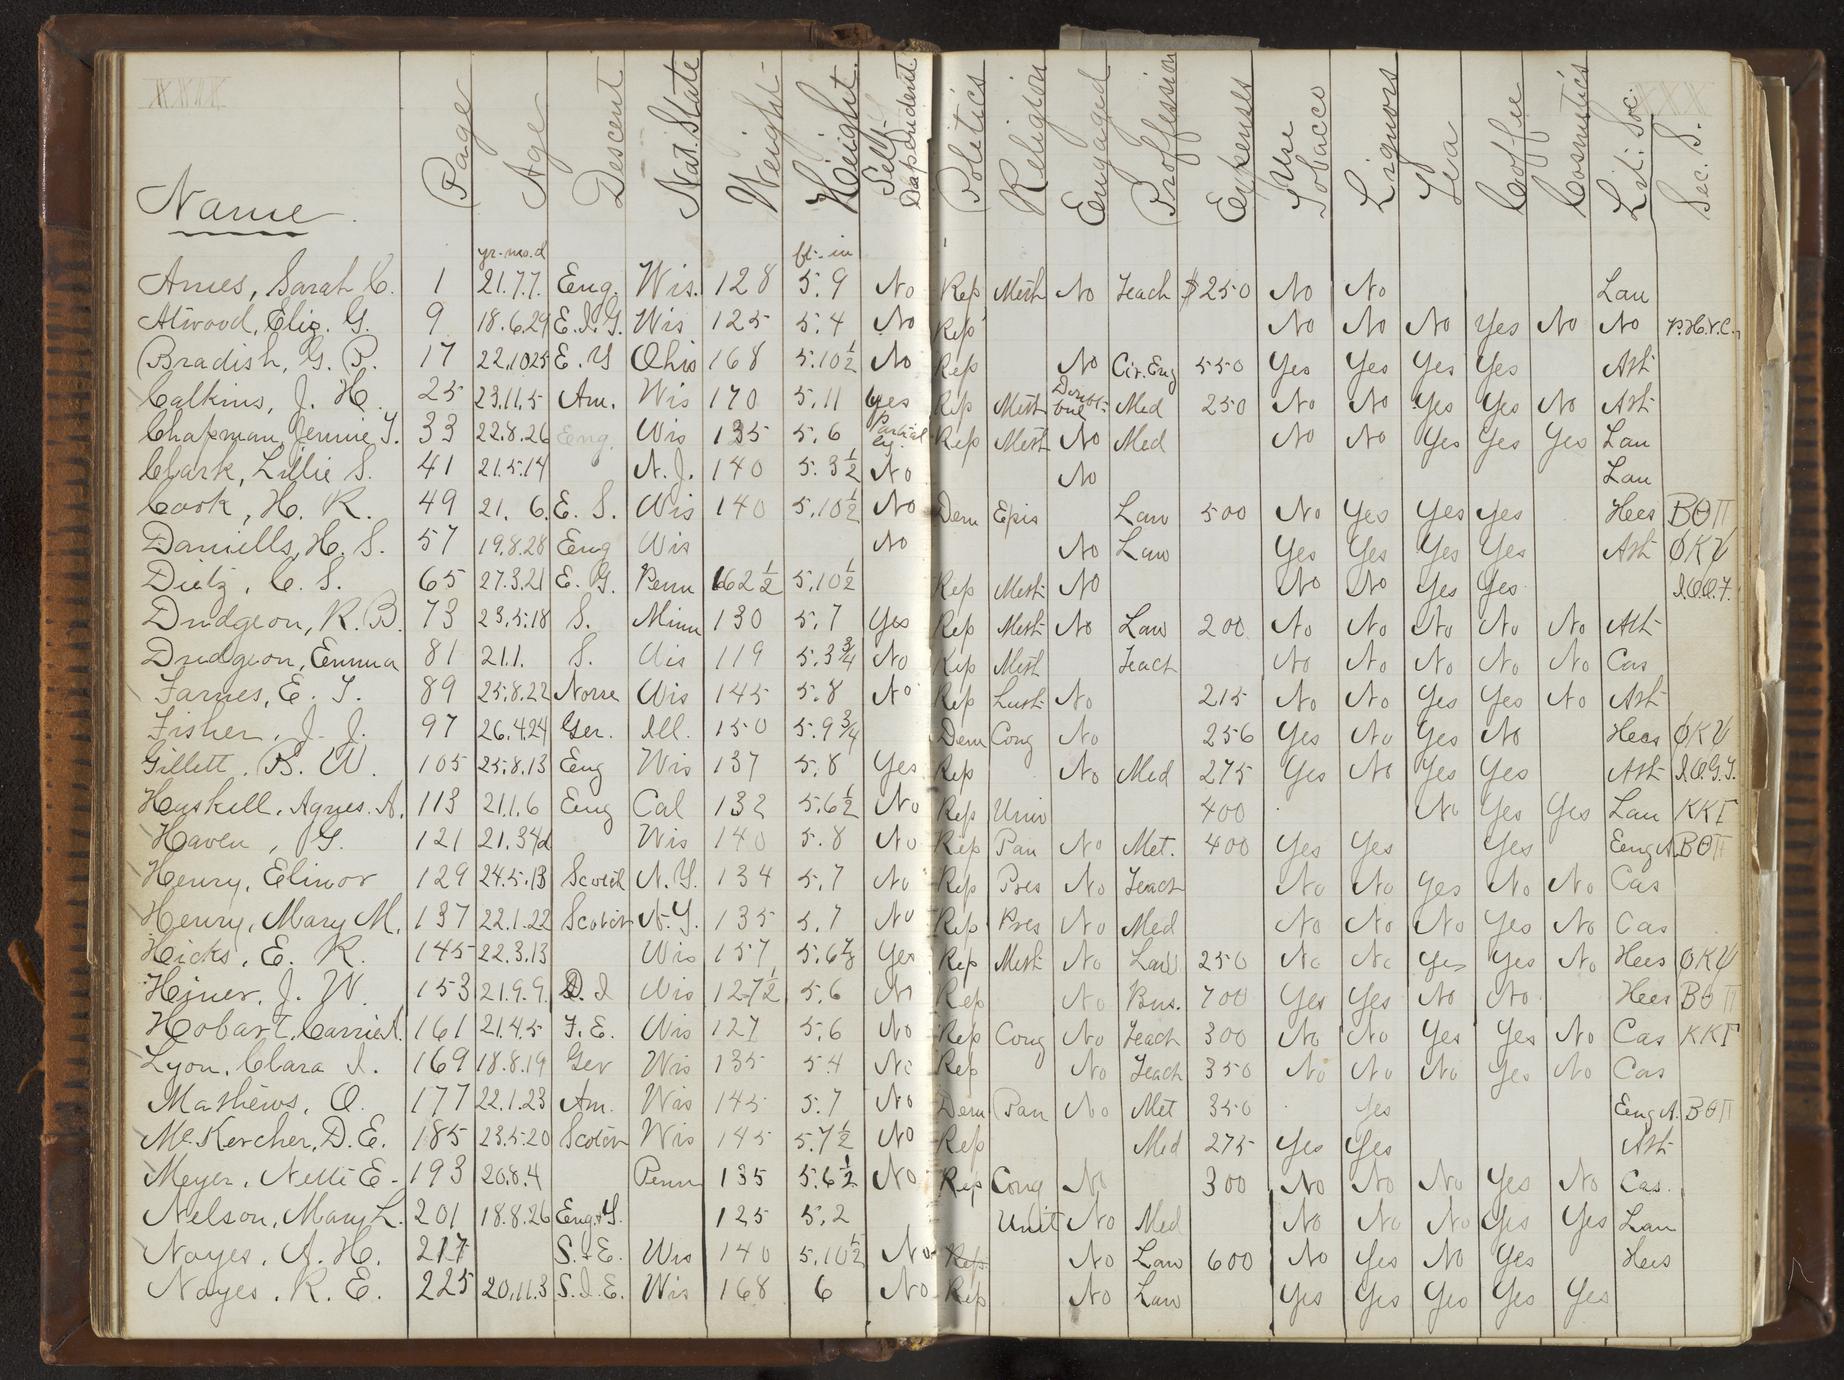 XXXX XXX
Name Page Age Descent Nat. State Weight Height Self-Dependent Politics Religion Engaged Proffession Expenses Use Tobacco Liquors Tea Coffee Cosmetics Lit. Soc. Sec. S.
yr-mo.d ft-in
Ames, Sarah C. 1 21.7.7. Eng. Wis. 128 5.9 No Rep Meth No Teach $250 No No Lau
Atwood, Eliz. G. 9 18.6.29 E.I.G. Wis 125 5.4 No Rep No No No Yes No No P.H.V.C.
Bradish, G. B. 17 22.10.25 E. Y Ohio 168 5.10½ No Rep No Civ. Eng 550 Yes Yes Yes Yes Ath
Calkins, J. H. 25 23.11.5 Am. Wis 170 5.11 Yes Rep Meth Doubtful Med 250 No No Yes Yes No Ath
Chapman, Jennie T. 33 22.8.26 Eng. Wis 135 5.6 Partially Rep Meth No Med No No Yes Yes Yes Lau
Clark, Lillie S. 41 21.5.14 N.J. 140 5.3½ No No Lau
Cook, H. R. 49 21. 6. E. S. Wis 140 5.10½ No Dem Epis Law 500 No Yes Yes Yes Hes BΘΠ
Daniells, H. S. 57 19.8.28 Eng Wis No No Law Yes Yes Yes Yes Ath ΦΚΨ
Dietz, C. S. 65 27.3.21 E. G. Penn 162½ 5.10½ Rep Meth No No No Yes Yes I.O.O.F.
Dudgeon, R. B. 73 23.5.18 S. Minn 130 5.7 Yes Rep Meth No Law 200 No No No No No Ath
Dudgeon, Emma 81 21.1. S. Wis 119 5.3¾ No Rep Meth Teach No No No No No Cas
Farnes, E. T. 89 25.8.22 Norse Wis 145 5.8 No Rep Luth No 215 No No Yes Yes No Ath
Fisher, J. J. 97 26.4.24 Ger. Ill. 150 5.9¾ Dem Cong No 256 Yes No Yes No Hes ΦΚΨ
Gillett, B. W. 105 25.8.13 Eng Wis 137 5.8 Yes Rep No Med 275 Yes No Yes Yes Ath I.O.G.T.
Huskell, Agnes. A. 113 21.1.6 Eng Cal 132 5.6½ No Rep Univ 400 No Yes Yes Lau KKΓ
Haven, G. 121 21.34d Wis 140 5.8 No Rep Pan No Met. 400 Yes Yes Yes Eng A. BΘΠ
Henry, Elinor 129 24.5.13 Scotch N.Y. 134 5.7 No Rep Pres No Teach No No Yes No No Cas
Henry, Mary M. 137 22.1.22 Scotch N.Y. 135 5.7 No Rep Pres No Med No No No Yes No Cas
Hicks, E. R. 145 22.3.13 Wis 157 5.6⅞ Yes Rep Meth No Law 250 No No Yes Yes No Hes ΦΚΨ
Hiner, J. W. 153 21.9.9. D. I Wis 127½ 5.6 No Rep No Bus. 700 Yes Yes No No Hes BΘΠ
Hobart, Carrie A. 161 21.4.5 F.E. Wis 127 5.6 No Rep Cong No Teach 300 No No Yes Yes No Cas KKΓ
Lyon, Clara I. 169 18.8.19 Ger Wis 135 5.4 No Rep No Teach 350 No No No Yes No Cas
Mathews, O. 177 22.1.23 Am. Wis 145 5.7 No Dem Pan No Met 350 Yes Eng A. BΘΠ
McKercher, D. E. 185 23.5.20 Scotch Wis 145 5.7½ No Rep Med 275 Yes Yes Ath
Meyer, Nettie E. 193 20.8.4 Penn 135 5.6½ No Rep Cong No 300 No No No Yes No Cas.
Nelson, Mary L. 201 18.8.26 Eng.+G. 125 5.2 Unit No Med No No No Yes Yes Lau
Noyes, A. H. 217 S.+E. Wis 140 5.10½ No Rep No Law 600 No Yes No Yes Hes
Noyes, R. E. 225 20.11.3 S.I.E. Wis 168 6 No Rep No Law Yes Yes Yes Yes Yes